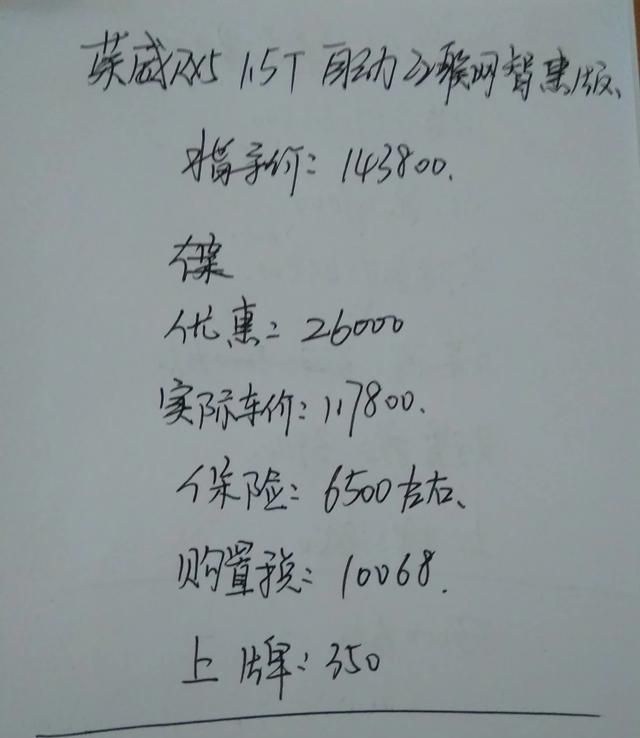 英威RX5 1.5T 自动互联网智惠版、
指导价：143800.
优惠：26000
实际车价：117800.
保险：6500左右、
购置税：10068.
上牌：350